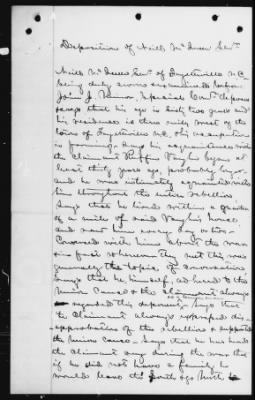 Deposition of Neill McQueen Senr.
Neill McQueen Senr. of Fayetteville N.C.
being duly sworn examined before
John J. Minor, Special Comr. deposes
says that his age is sixty two years and
his residence is three miles west of the
town of Fayetteville N.C. His occupation
is farming. Says his acquaintance with
the claimant Ruffin Vaughn began at
least thirty years ago, probably longer
and he was intimately acquainted with
him throughout the entire rebellion
Says that he lived within a quarter
of a mile of said Vaughn's house
and saw him every day or two.
Conversed with him about the war
in fact whenever they met this was
generally the topic of conversation
Says that he, himself, adhered to the
Union Cause & the claimant always
regarded this deponent. Says that
the Claimant always expressed dis-
approbation of the rebellion & supported
the Union cause. Says he has heard
the claimant say during the war that
if he did not have a family he
would leave the South & go North